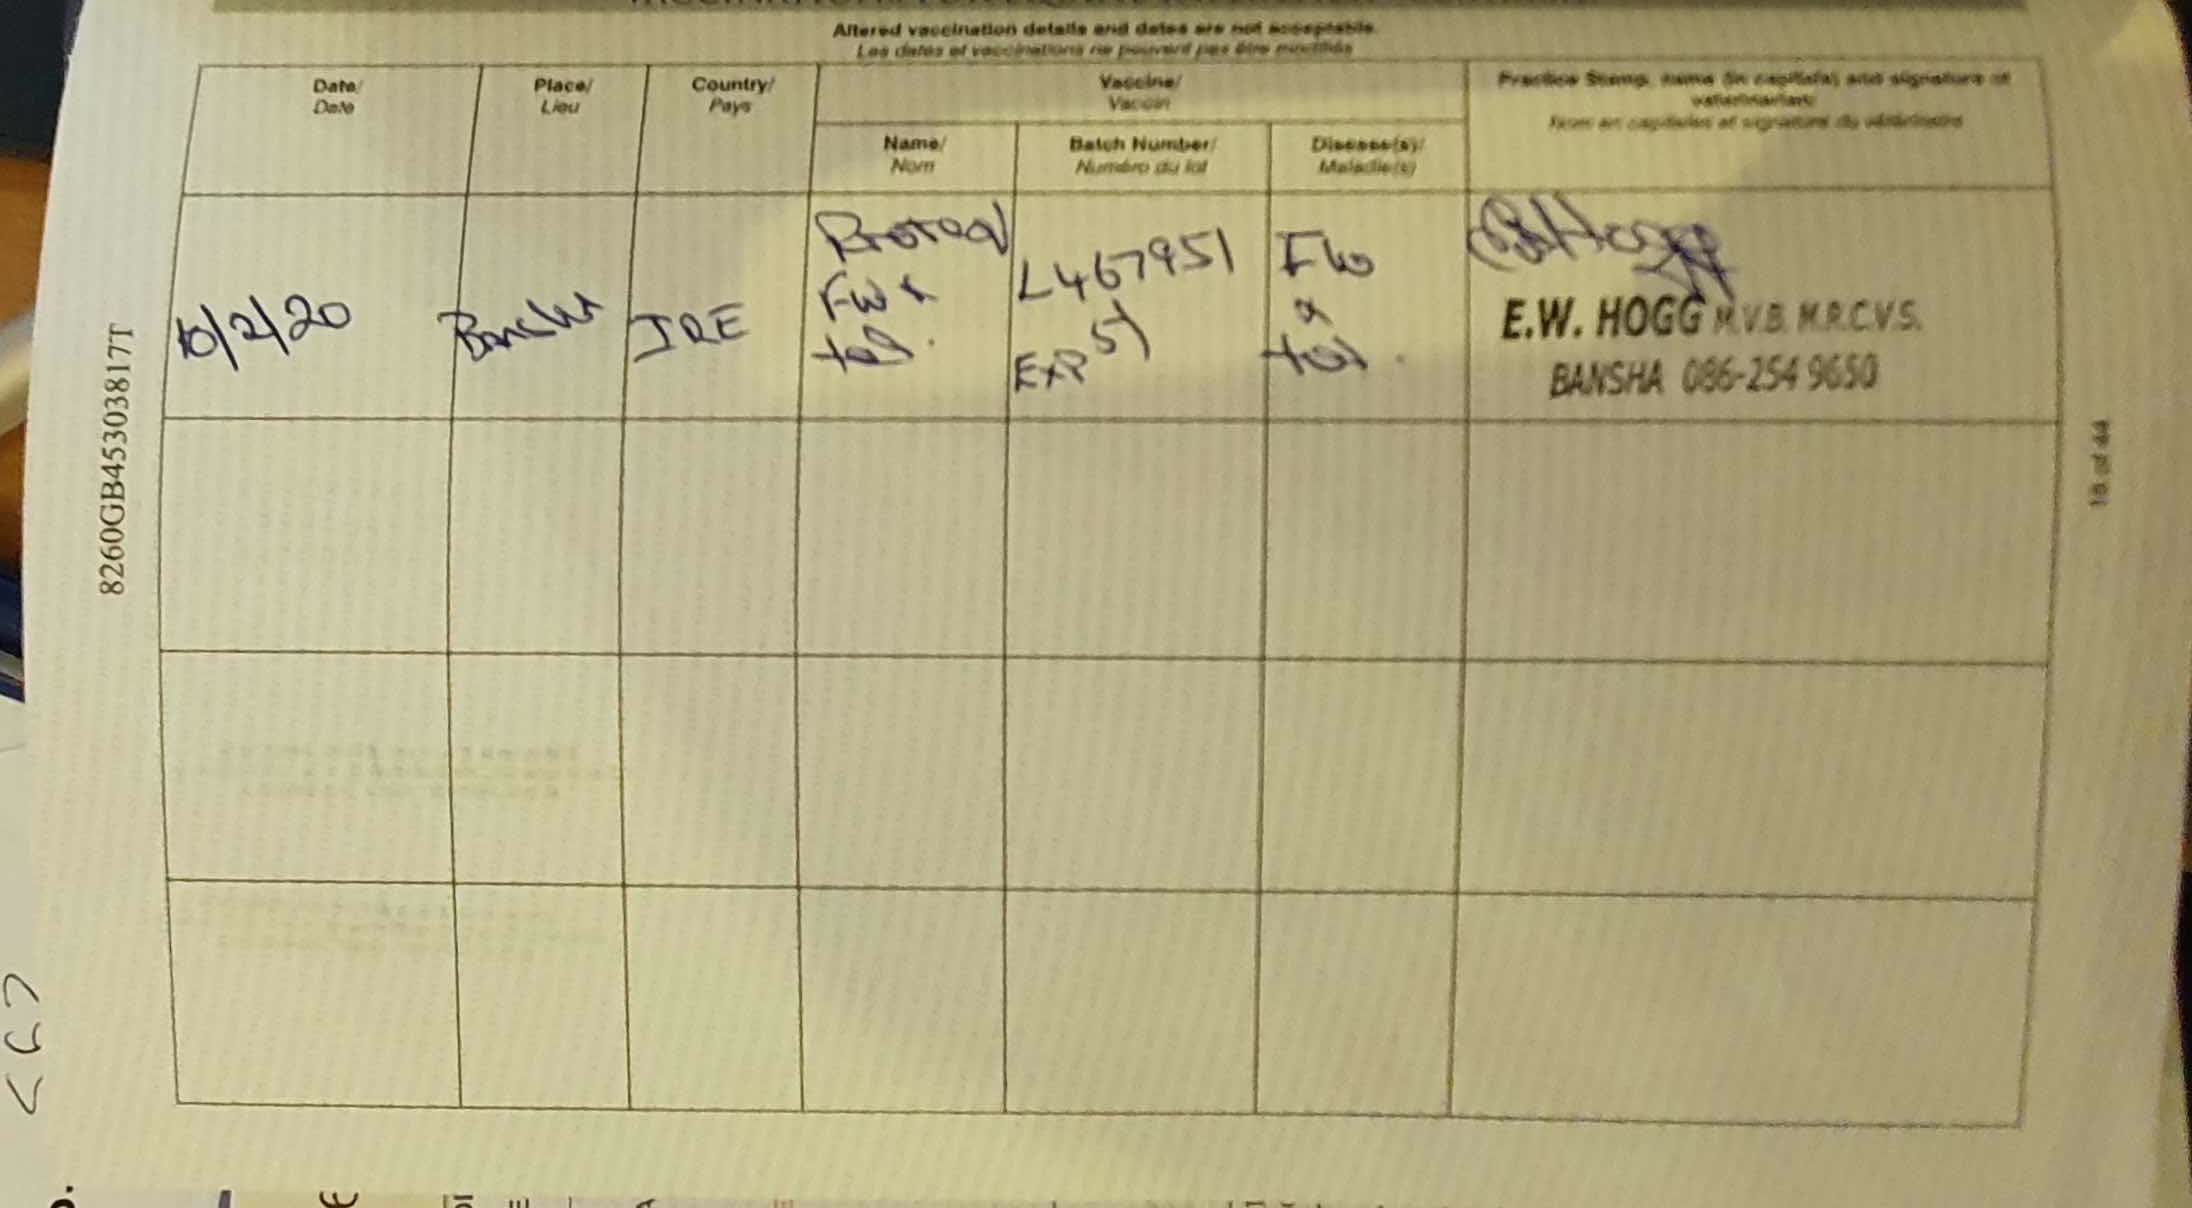 Altered vaccination details and dates are not acceptable.
Les dates et vaccinations ne peuvent pas être modifiés
Date/
Date
Place/
Lieu
Country/
Pays
Vaccine/
Vaccin
Practice Stamp, name (in capitals) and signature of
veterinarian/
Nom en capitales et signature du vétérinaire
Name/
Nom
Batch Number/
Numéro du lot
Disease(s)/
Maladie(s)
10/2/20
Bansha
IRE
Proteq
Flu &
tet.
L467951
EXP
Flu
&
tet.
E.W. HOGG M.V.B. M.R.C.V.S.
BANSHA 086-254 9650
8260GB45303817T
of 44